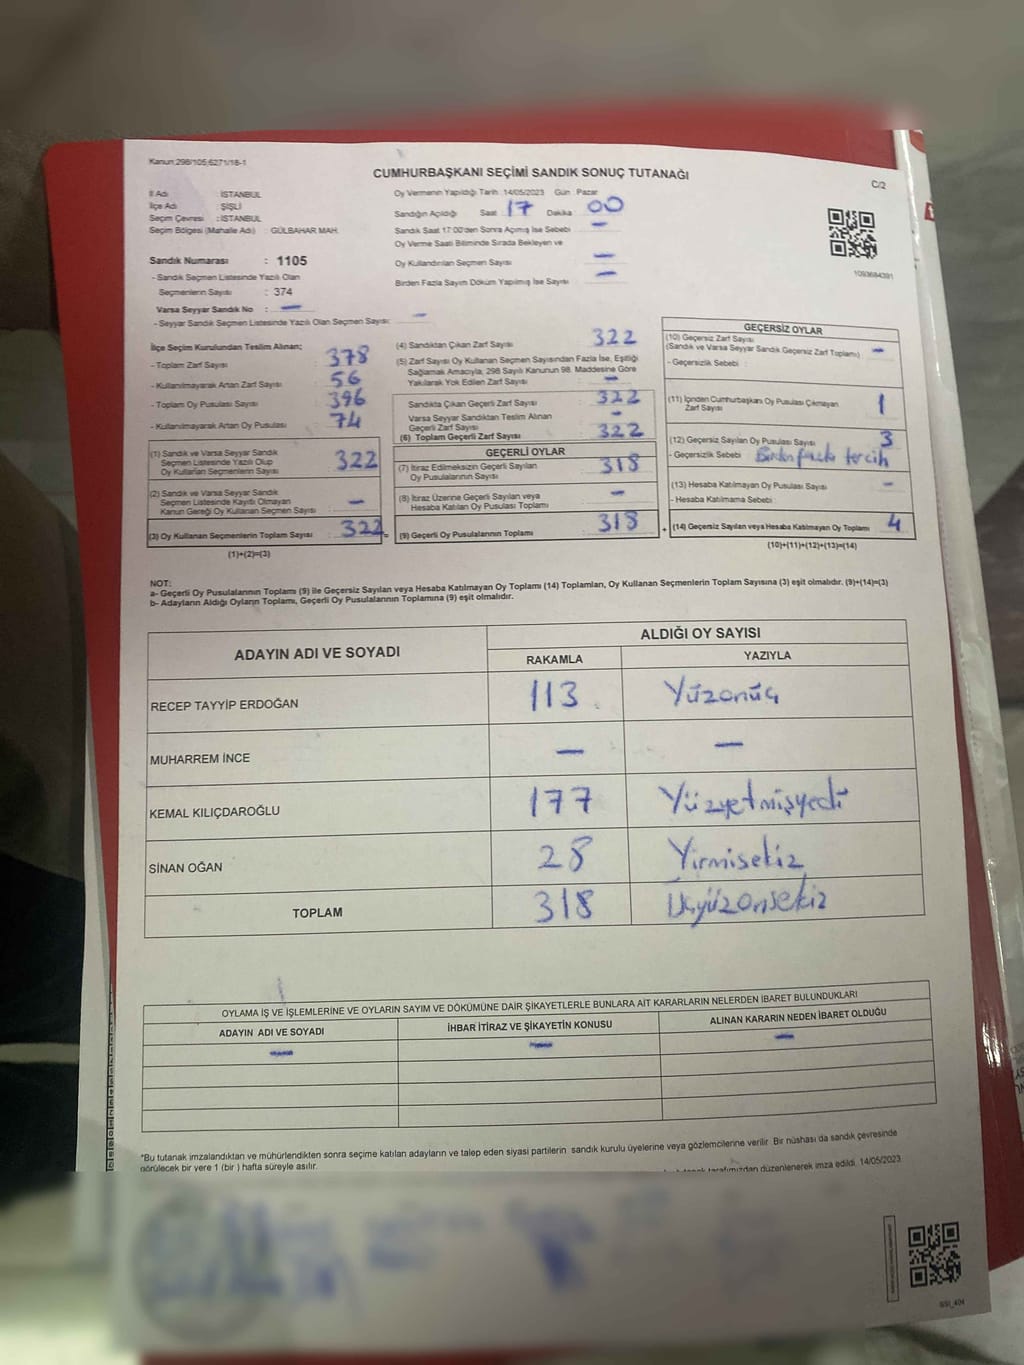 Kanun:298/105;6271/18-1
CUMHURBAŞKANI SEÇİMİ SANDIK SONUÇ TUTANAĞI
C/2
İl Adı : İSTANBUL
İlçe Adı : ŞİŞLİ
Seçim Çevresi : İSTANBUL
Seçim Bölgesi (Mahalle Adı) GÜLBAHAR MAH.
Sandık Numarası : 1105
- Sandık Seçmen Listesinde Yazılı Olan
Seçmenlerin Sayısı : 374
Varsa Seyyar Sandık No : —
- Seyyar Sandık Seçmen Listesinde Yazılı Olan Seçmen Sayısı: —
Oy Vermenin Yapıldığı Tarih :14/05/2023 Gün Pazar
Sandığın Açıldığı Saat 17 Dakika 00
Sandık Saat 17:00'den Sonra Açılmış İse Sebebi —
Oy Verme Saati Bitiminde Sırada Bekleyen ve
Oy Kullandırılan Seçmen Sayısı —
Birden Fazla Sayım Döküm Yapılmış İse Sayısı —
1093684391
İlçe Seçim Kurulundan Teslim Alınan;
- Toplam Zarf Sayısı : 378
- Kullanılmayarak Artan Zarf Sayısı : 56
- Toplam Oy Pusulası Sayısı : 396
- Kullanılmayarak Artan Oy Pusulası : 74
(1) Sandık ve Varsa Seyyar Sandık
Seçmen Listesinde Yazılı Olup
Oy Kullanan Seçmenlerin Sayısı : 322
(2) Sandık ve Varsa Seyyar Sandık
Seçmen Listesinde Kayıtlı Olmayan
Kanun Gereği Oy Kullanan Seçmen Sayısı : —
(3) Oy Kullanan Seçmenlerin Toplam Sayısı : 322
(1)+(2)=(3)
(4) Sandıktan Çıkan Zarf Sayısı : 322
(5) Zarf Sayısı Oy Kullanan Seçmen Sayısından Fazla İse, Eşitliği
Sağlamak Amacıyla, 298 Sayılı Kanunun 98. Maddesine Göre
Yakılarak Yok Edilen Zarf Sayısı : —
Sandıkta Çıkan Geçerli Zarf Sayısı : 322
Varsa Seyyar Sandıktan Teslim Alınan
Geçerli Zarf Sayısı : —
(6) Toplam Geçerli Zarf Sayısı : 322
GEÇERLİ OYLAR
(7) İtiraz Edilmeksizin Geçerli Sayılan
Oy Pusulalarının Sayısı : 318
(8) İtiraz Üzerine Geçerli Sayılan veya
Hesaba Katılan Oy Pusulası Toplamı : —
= (9) Geçerli Oy Pusulalarının Toplamı : 318 +
GEÇERSİZ OYLAR
(10) Geçersiz Zarf Sayısı
(Sandık ve Varsa Seyyar Sandık Geçersiz Zarf Toplamı) : —
- Geçersizlik Sebebi :
(11) İçinden Cumhurbaşkanı Oy Pusulası Çıkmayan
Zarf Sayısı : 1
(12) Geçersiz Sayılan Oy Pusulası Sayısı : 3
- Geçersizlik Sebebi : Birden fazla tercih
(13) Hesaba Katılmayan Oy Pusulası Sayısı : —
- Hesaba Katılmama Sebebi :
(14) Geçersiz Sayılan veya Hesaba Katılmayan Oy Toplamı : 4
(10)+(11)+(12)+(13)=(14)
NOT:
a- Geçerli Oy Pusulalarının Toplamı (9) ile Geçersiz Sayılan veya Hesaba Katılmayan Oy Toplamı (14) Toplamları, Oy Kullanan Seçmenlerin Toplam Sayısına (3) eşit olmalıdır. (9)+(14)=(3)
b- Adayların Aldığı Oyların Toplamı, Geçerli Oy Pusulalarının Toplamına (9) eşit olmalıdır.
ADAYIN ADI VE SOYADI
ALDIĞI OY SAYISI
RAKAMLA YAZIYLA
RECEP TAYYİP ERDOĞAN 113 Yüzonüç
MUHARREM İNCE — —
KEMAL KILIÇDAROĞLU 177 Yüzyetmişyedi
SİNAN OĞAN 28 Yirmisekiz
TOPLAM 318 Üçyüzonsekiz
OYLAMA İŞ VE İŞLEMLERİNE VE OYLARIN SAYIM VE DÖKÜMÜNE DAİR ŞİKAYETLERLE BUNLARA AİT KARARLARIN NELERDEN İBARET BULUNDUKLARI
ADAYIN ADI VE SOYADI İHBAR İTİRAZ VE ŞİKAYETİN KONUSU ALINAN KARARIN NEDEN İBARET OLDUĞU
— — —
*Bu tutanak imzalandıktan ve mühürlendikten sonra seçime katılan adayların ve talep eden siyasi partilerin sandık kurulu üyelerine veya gözlemcilerine verilir. Bir nüshası da sandık çevresinde
görülecek bir yere 1 (bir ) hafta süreyle asılır.
tarafımızdan düzenlenerek imza edildi. 14/05/2023